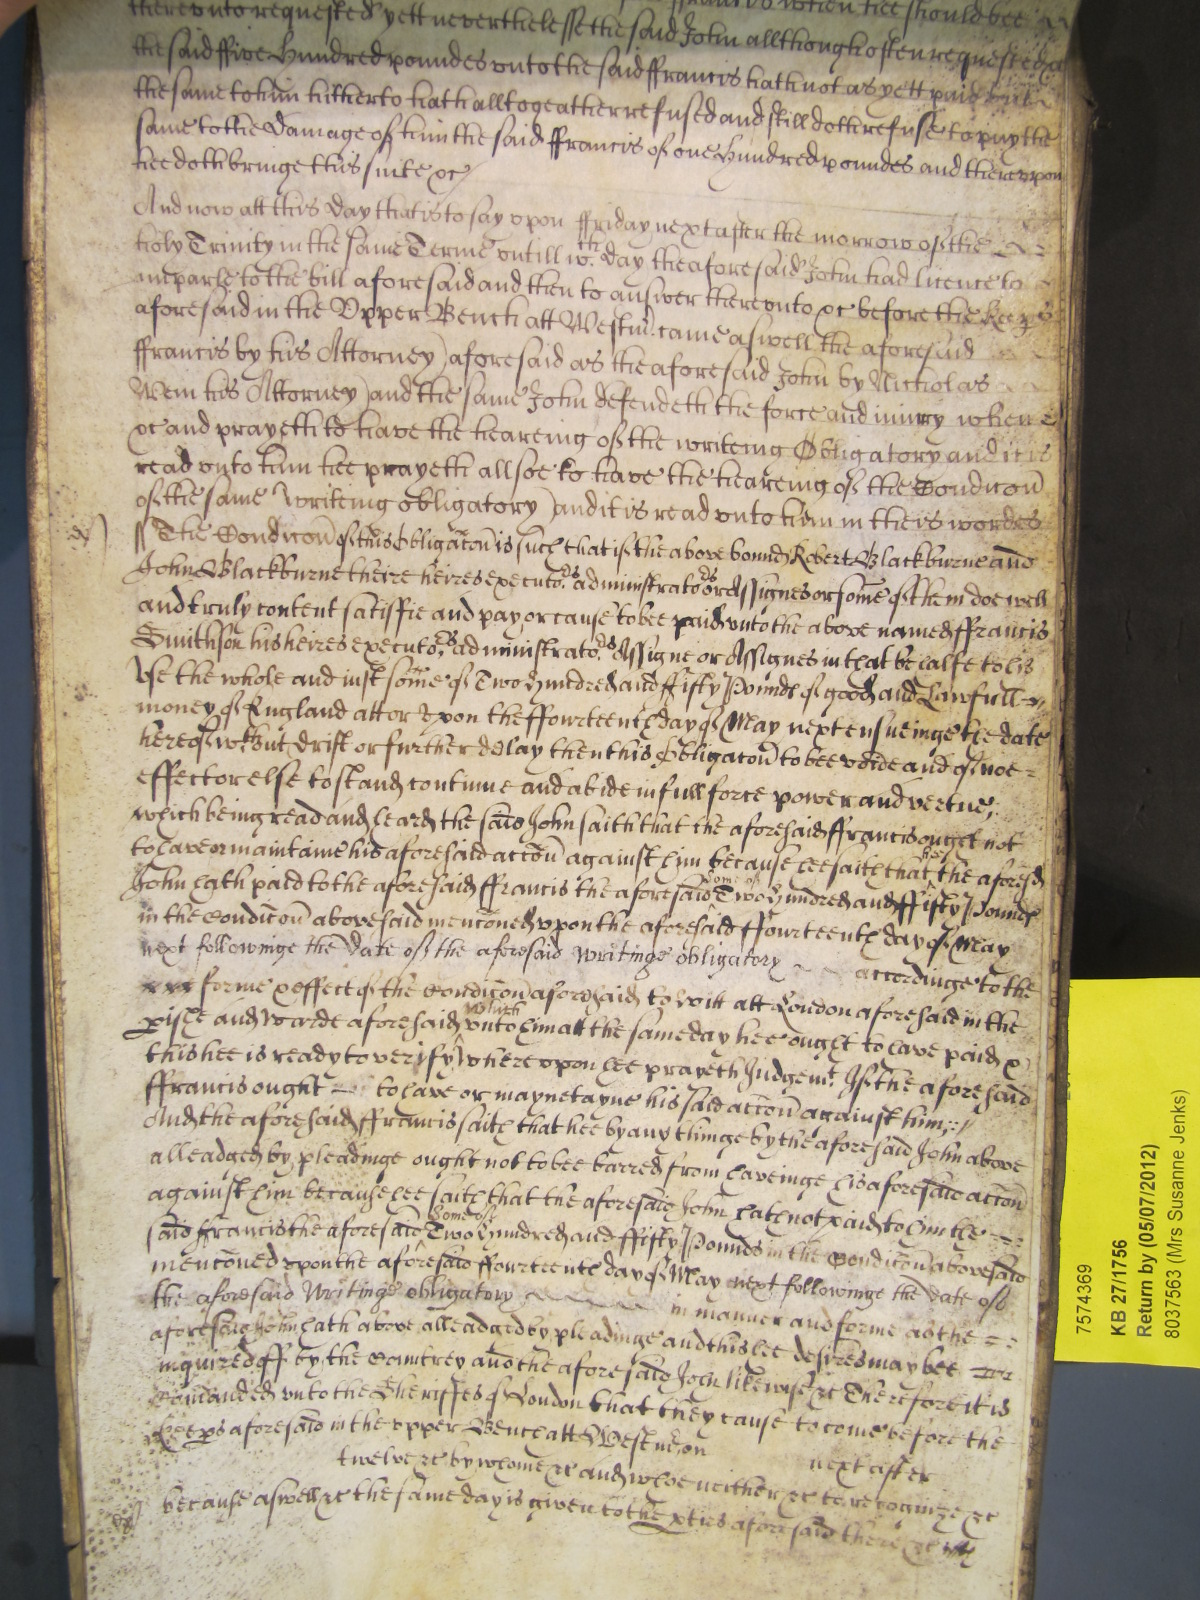 thereunto requested yett neverthelesse the said John allthough often requested
the said ffive Hundred poundes unto the said ffrancis hath not as yett paid but
the same to him hitherto hath alltogeather refused and still doth refuse to pay the
same to the damage of him the said ffrancis of one Hundred poundes and thereupon
hee doth bringe this suite &c
And now att this day that is to say upon ffriday next after the morrow of the
holy Trinity in the same Terme untill wch day the aforesaid John had licence to
imparle to the bill aforesaid and then to answer thereunto &c before the
aforesaid in the Upper Bench att Westmr came aswell the aforesaid
ffrancis by his Attorney aforesaid as the aforesaid John by Nicholas
his Attorney and the same John defendeth the force and iniury when
&c and prayeth to have the heareing of the writeing Obligatory and it is
read unto him hee prayeth allsoe to have the heareing of the Condicon
of the same writeing obligatory and it is read unto him in theis wordes
The Condicon of this Obligacon is such that if the above bound Robert Blackburne and
John Blackburne theire heires executors administrators or Assignes or some of them doe well
and truly content satisfie and pay or cause to bee paid unto the above named ffrancis
Smithson his heires executors administrators Assigne or Assignes in that behalfe to his
Use the whole and iust some of Two Hundred and ffifty Pounds of good and Lawfull
money of England att or upon the ffourteenth day of May next ensueinge the date
hereof without drift or further delay then this Obligacon to bee voide and of noe
effect or else to stand continue and abide in full force power and vertue;
which being read and heard the said John saith that the aforesaid ffrancis ought not
to have or maintaine his aforesaid accon against him because hee saith that hee the aforesd
John hath paid to the aforesaid ffrancis the aforesaid some of Two Hundred and ffifty Pounds
in the Condicon abovesaid menconed upon the aforesaid ffourteenth day of May
next followinge the date of the aforesaid Writinge obligatory accordinge to the
forme & effect of the Condicon aforesaid to witt att London aforesaid in the
pish and Warde aforesaid which unto him att the same day hee ought to have paid &
this hee is ready to verify whereupon hee prayeth Judgemt. If the aforesaid
ffrancis ought to have or maynetayne his said accon against him;
And the aforesaid ffrancis saith that hee by any thinge by the aforesaid John above
alleadged by pleadinge ought not to bee barred from haveinge his aforesaid accon
against him because hee saith that the aforesaid John hath not paid to him the
said ffrancis the aforesaid some of Two Hundred and ffifty Pounds in the Condicon abovesaid
menconed upon the aforesaid ffourteenth day of May next followinge the date of
the aforesaid Writinge obligatory in manner and forme as the
aforesaid John hath above alleadged by pleadinge and this hee desires may bee
inquired off by the Countrey and the aforesaid John likewise &c Therefore it is
Comanded unto the Sheriffes of London that they cause to come before the
keeps aforesaid in the upper Bench att Westmr. on next after
twelve &c by whome &c and whoe neither &c to recognize &c
because aswell &c the same day is given to the pties aforesaid there &c
7574369
KB 27/1756
Return by (05/07/2012)
8037563 (Mrs Susanne Jenks)